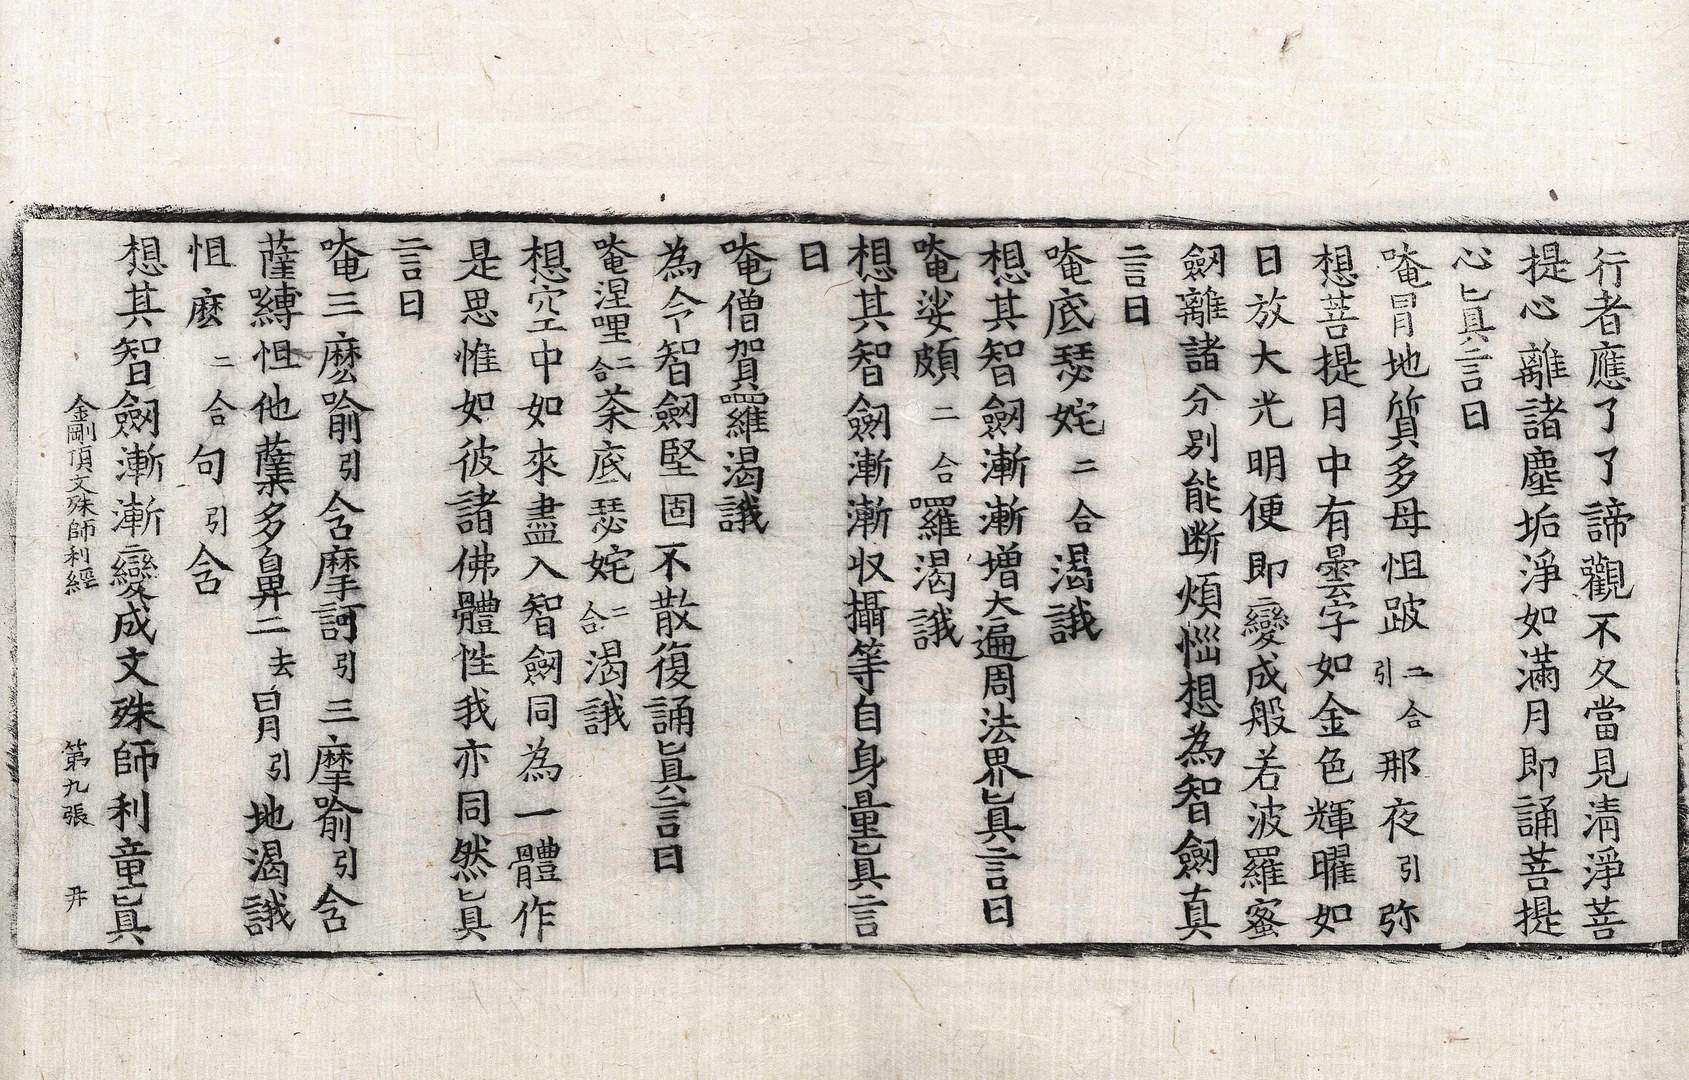 行者應了了諦觀不久當見清淨菩
提心離諸塵垢淨如滿月即誦菩提
心眞言曰
唵冒地質多母怛跛二合引那夜引弥
想菩提月中有曇字如金色輝曜如
日放大光明便即變成般若波羅蜜
劔離諸分別能断煩惱想為智劔真
言曰
唵底瑟姹二合渴誐
想其智劔漸漸增大遍周法界眞言曰
唵娑頗二合囉渴誐
想其智劔漸漸収攝等自身量眞言
曰
唵僧賀囉渴誐
為令智劔堅固不散復誦眞言曰
唵涅哩二合茶底瑟姹二合渴誐
想空中如來盡入智劔同為一體作
是思惟如彼諸佛體性我亦同然眞
言曰
唵三麽喻引含摩訶引三摩喻引含
薩縛怛他蘖多鼻二去胃引地渴誐
怛麽二合句引含
想其智劔漸漸變成文殊師利童眞
金剛頂文殊師利經 第九張